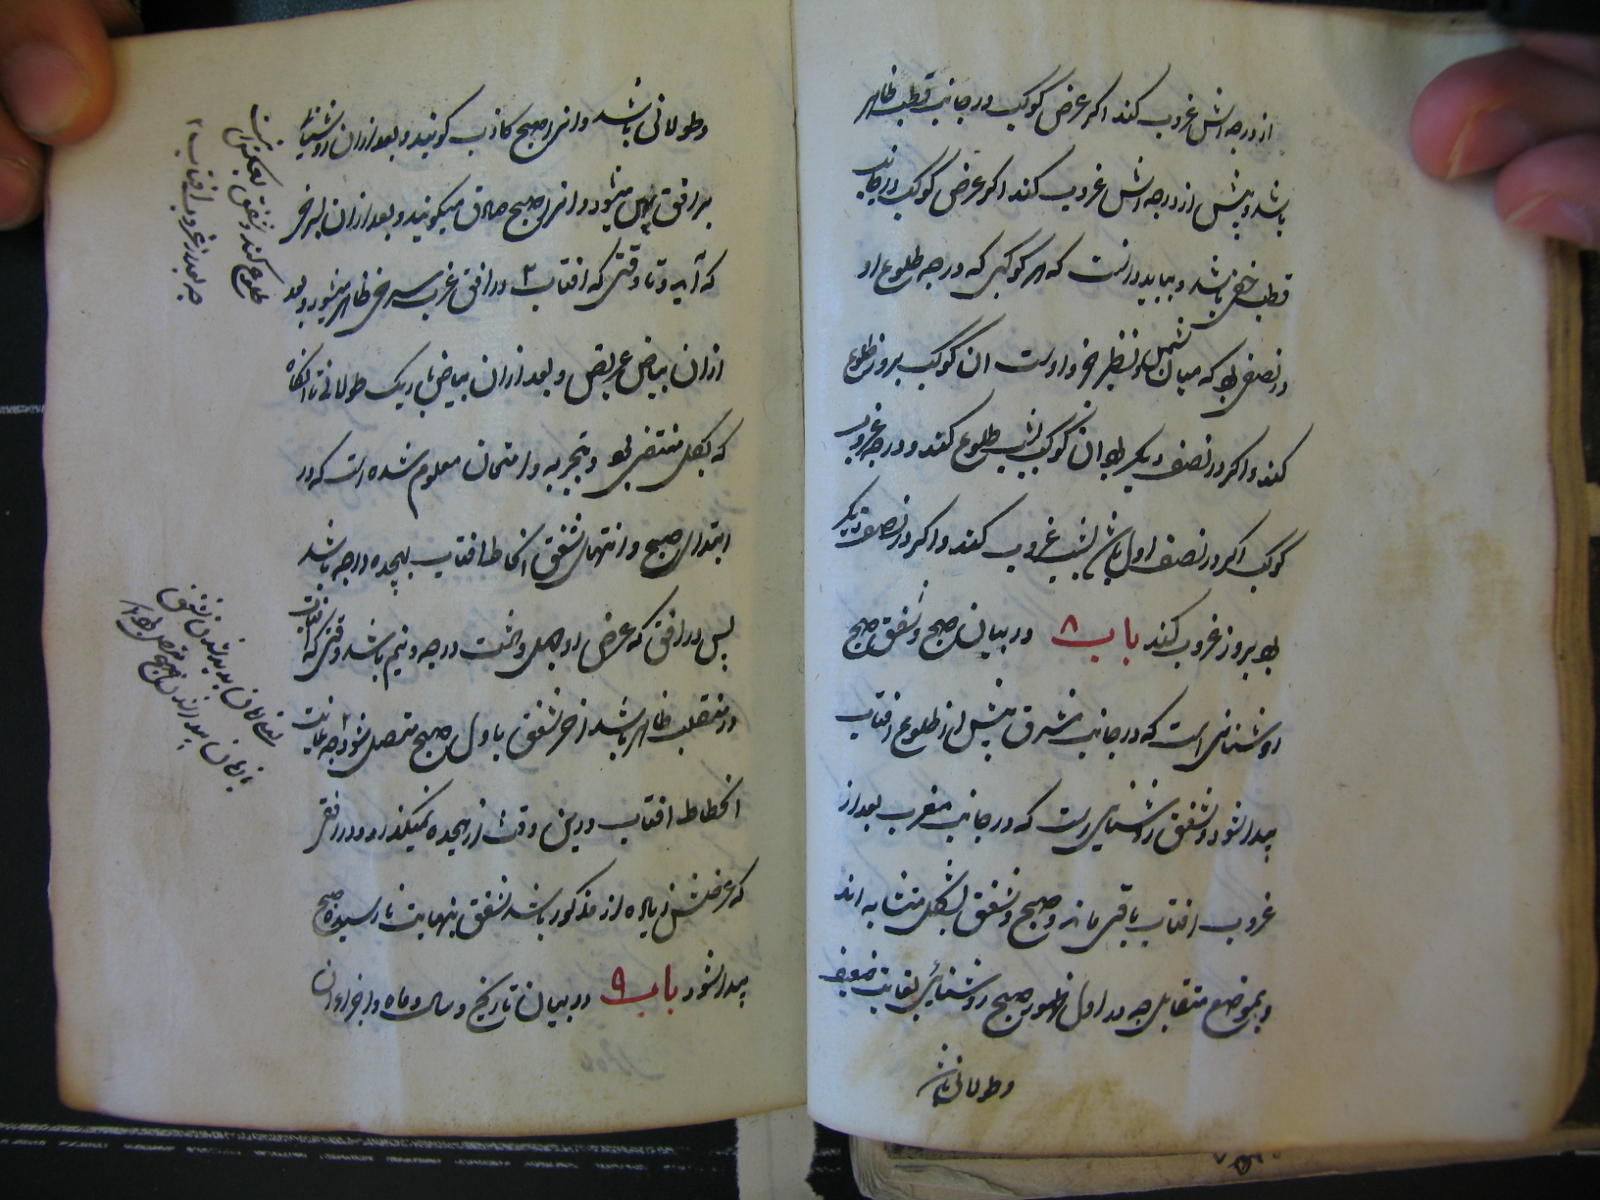 از درجه‌اش غروب کند اگر عرض کوکب در جانب قطب ظاهر
باشد و پیش از درجه‌اش غروب کند اگر عرض کوکب در جانب
قطب خفی باشد و بباید دانست که هر کوکبی که درجه طلوع او
در نصفی بود که میان شمس و نظیر جزو اوست ان کوکب بروز طلوع
کند و اگر در نصف دیگر بود ان کوکب بشب طلوع کند و درجه غروب
کوکب اگر در نصف اول باشد بشب غروب کند و اگر در نصف دیگر
بود بروز غروب کند باب ۸ در بیان صبح و شفق صبح
روشنائی است که در جانب مشرق پیش از طلوع افتاب
پیدا شود و شفق روشنائی است که در جانب مغرب بعد از
غروب افتاب باقی ماند و صبح و شفق بشکل متشابه اند
و بموضع متقابل چه در اول ظهور صبح روشنائی بغایت ضعیف
وطولانی باشد
و طولانی باشد و انرا صبح کاذب گویند و بعد ازان روشنائی
بر افق پهن میشود و انرا صبح صادق میگویند و بعد ازان سرخی
که آید و تا وقتی که افتاب ۲ در افق غرب سرخی ظاهر میشود و بعد
ازان بیاض عریض و بعد ازان بیاض باریک طولانی تا انگاه
که بکل منتفی بود و بتجربه و امتحان معلوم شده است که در
ابتدای صبح و انتهای شفق انحطاط افتاب هیجده درجه باشد
پس در افقی که عرض او چهل و هشت درجه و نیم باشد وقتی که افتاب
در منقلب ظاهر باشد اخر شفق باول صبح متصل شود چه غایت
انحطاط افتاب درین وقت از هیجده نمیگذرد و در افقی
که عرضش زیاده از مذکور باشد شفق بنهایت نارسیده صبح
پیدا شود باب ۹ در بیان تاریخ و سال و ماه و اجزاء ان
طلوع کند و شفق بعکس این است
چه بعد از غروب افتاب ۲